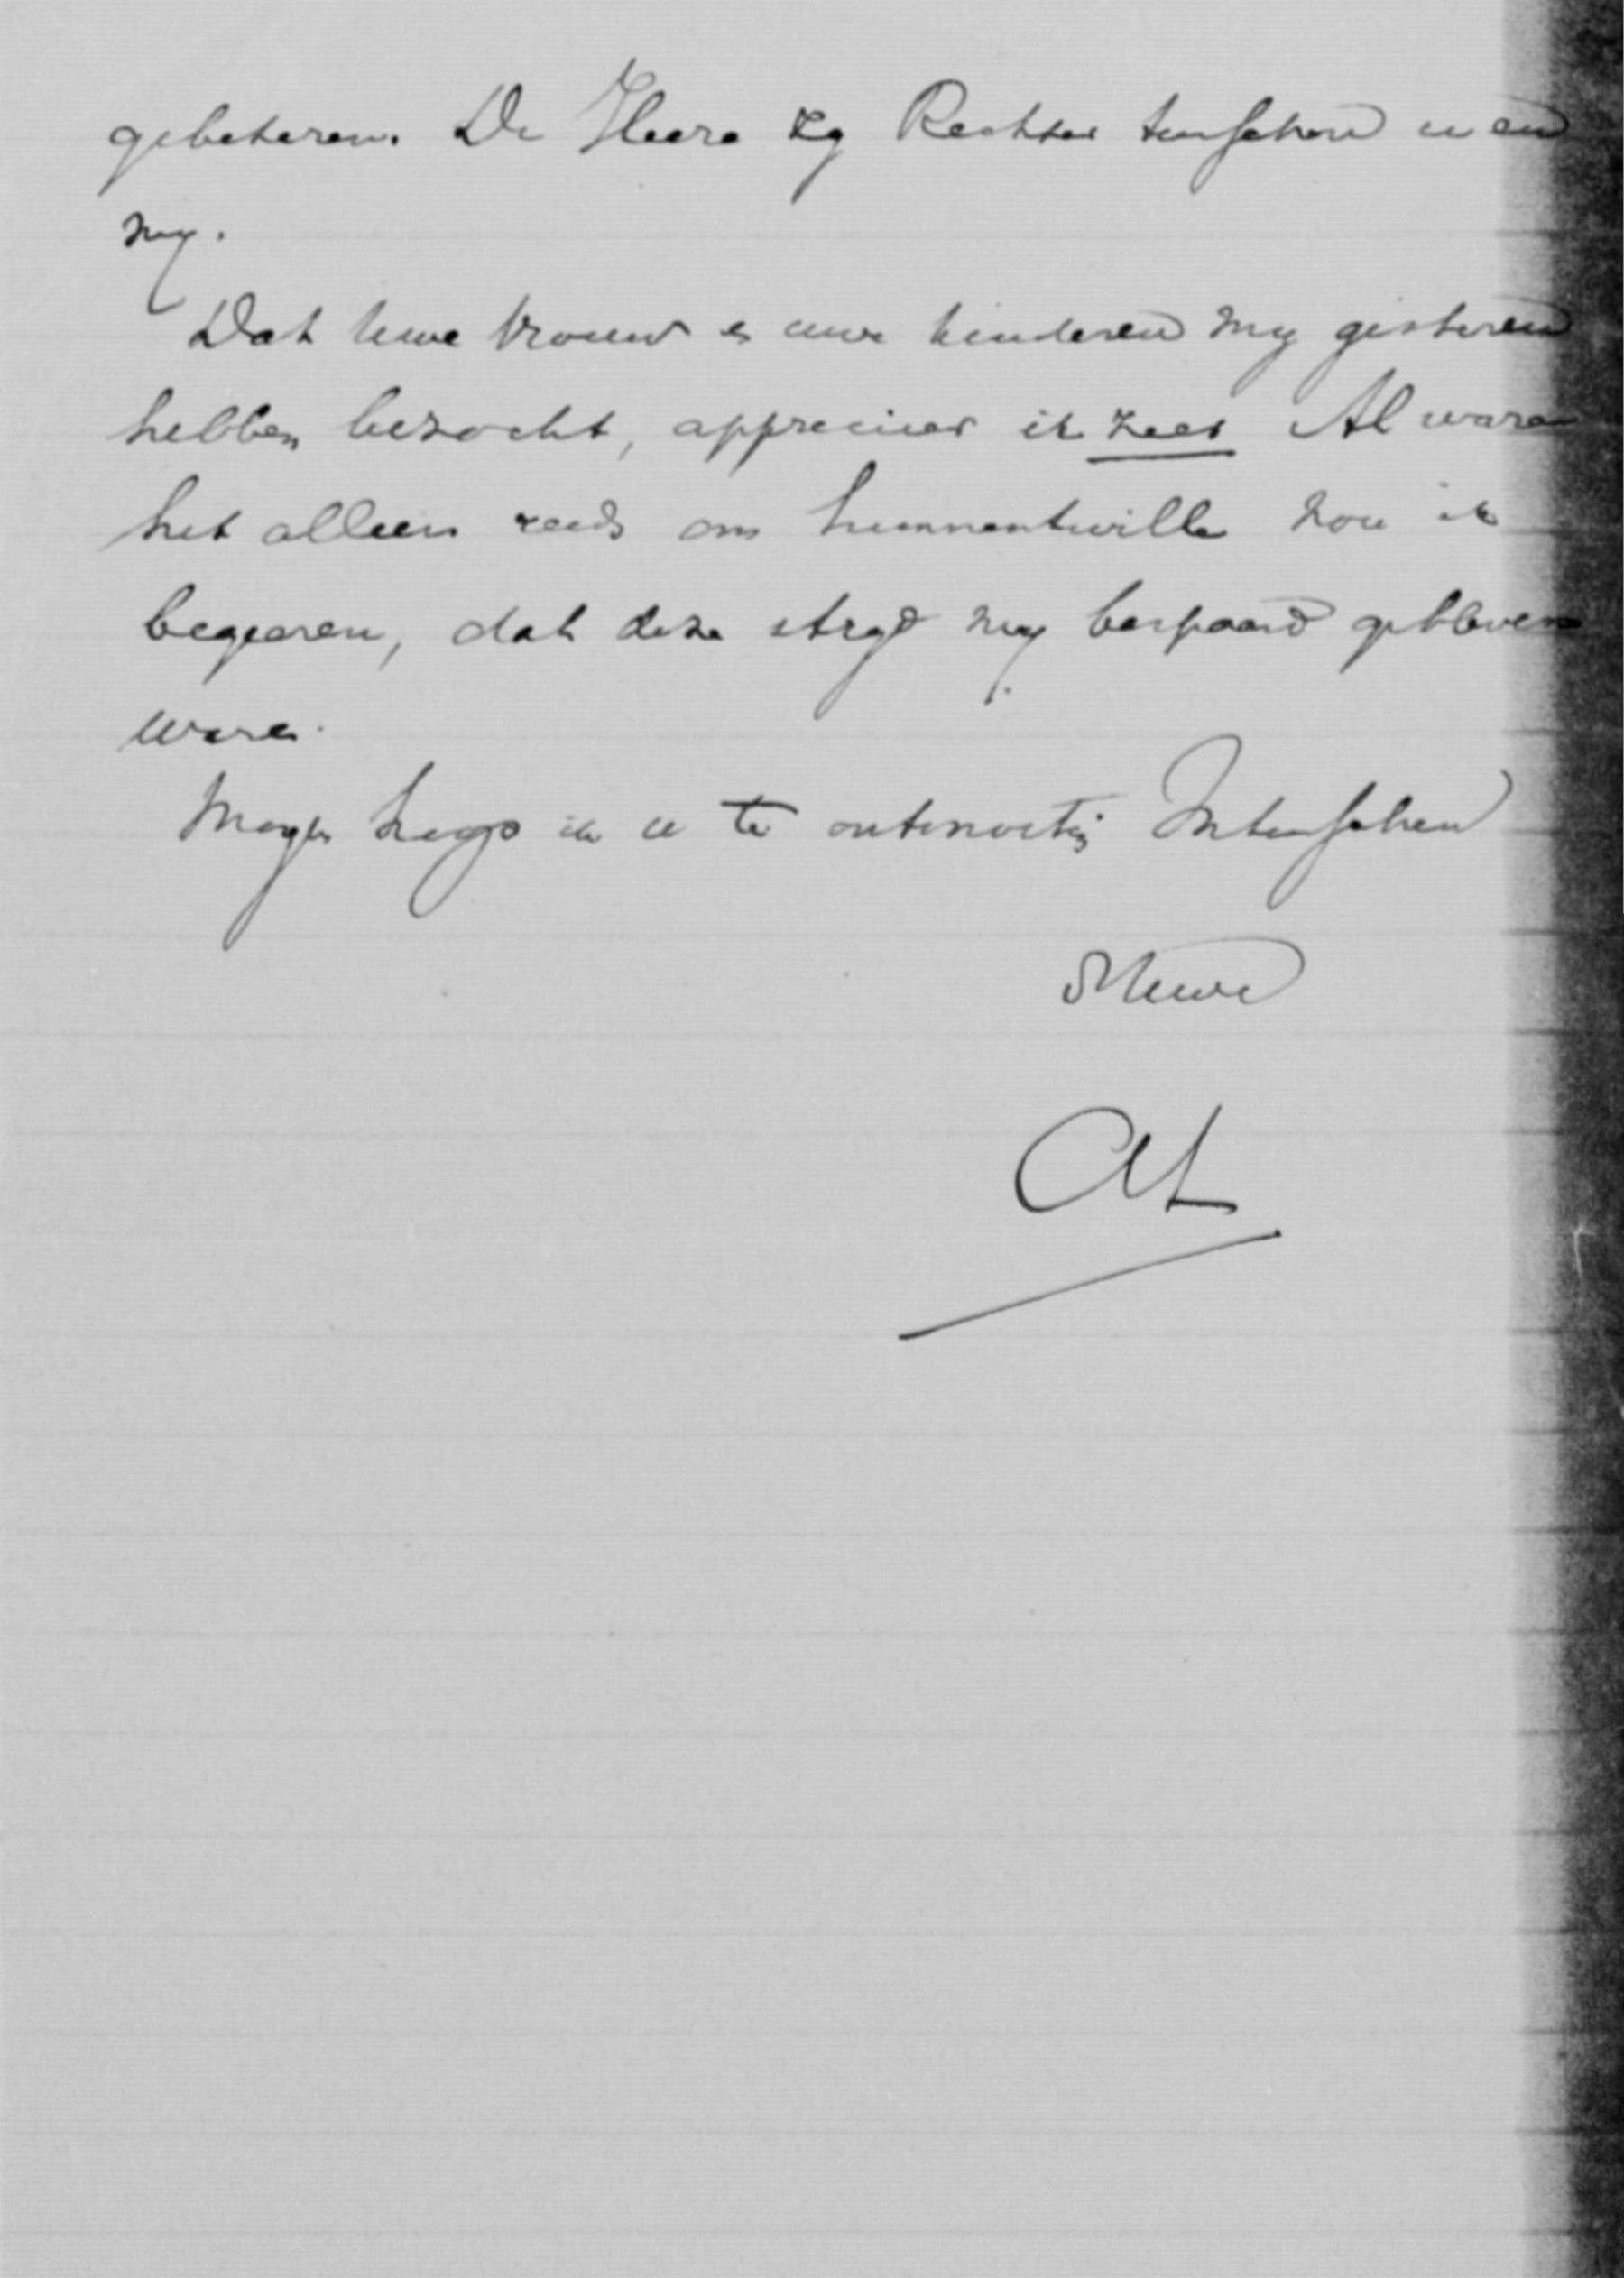 gebeteren. De Heere zy Rechter tusschen u en
my.
Dat uwe vrouw en uwe kinderen my gisteren
hebben bezocht, apprecieer ik zeer Al ware
het alleen reeds om hunnentwille zou ik
begeeren, dat deze stryd my bespaard gebleven
ware.
Morgen hoop ik u te ontmoeten Intusschen
t.t.